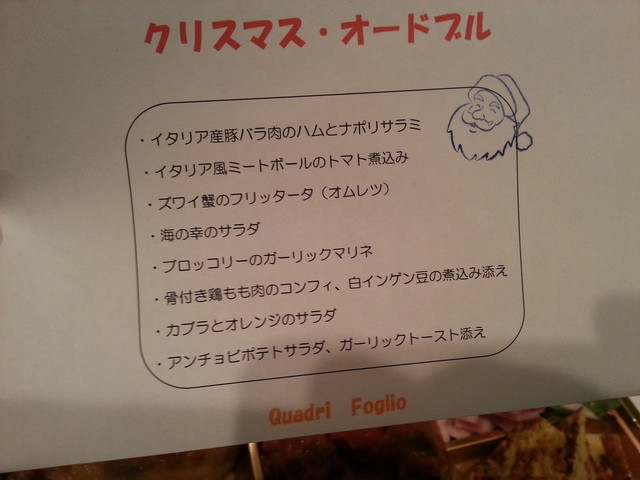 クリスマス・オードブル
・イタリア産豚バラ肉のハムとナポリサラミ
・イタリア風ミートボールのトマト煮込み
・ズワイ蟹のフリッタータ（オムレツ）
・海の幸のサラダ
・ブロッコリーのガーリックマリネ
・骨付き鶏もも肉のコンフィ、白インゲン豆の煮込み添え
・カブラとオレンジのサラダ
・アンチョビポテトサラダ、ガーリックトースト添え
Quadri Foglio